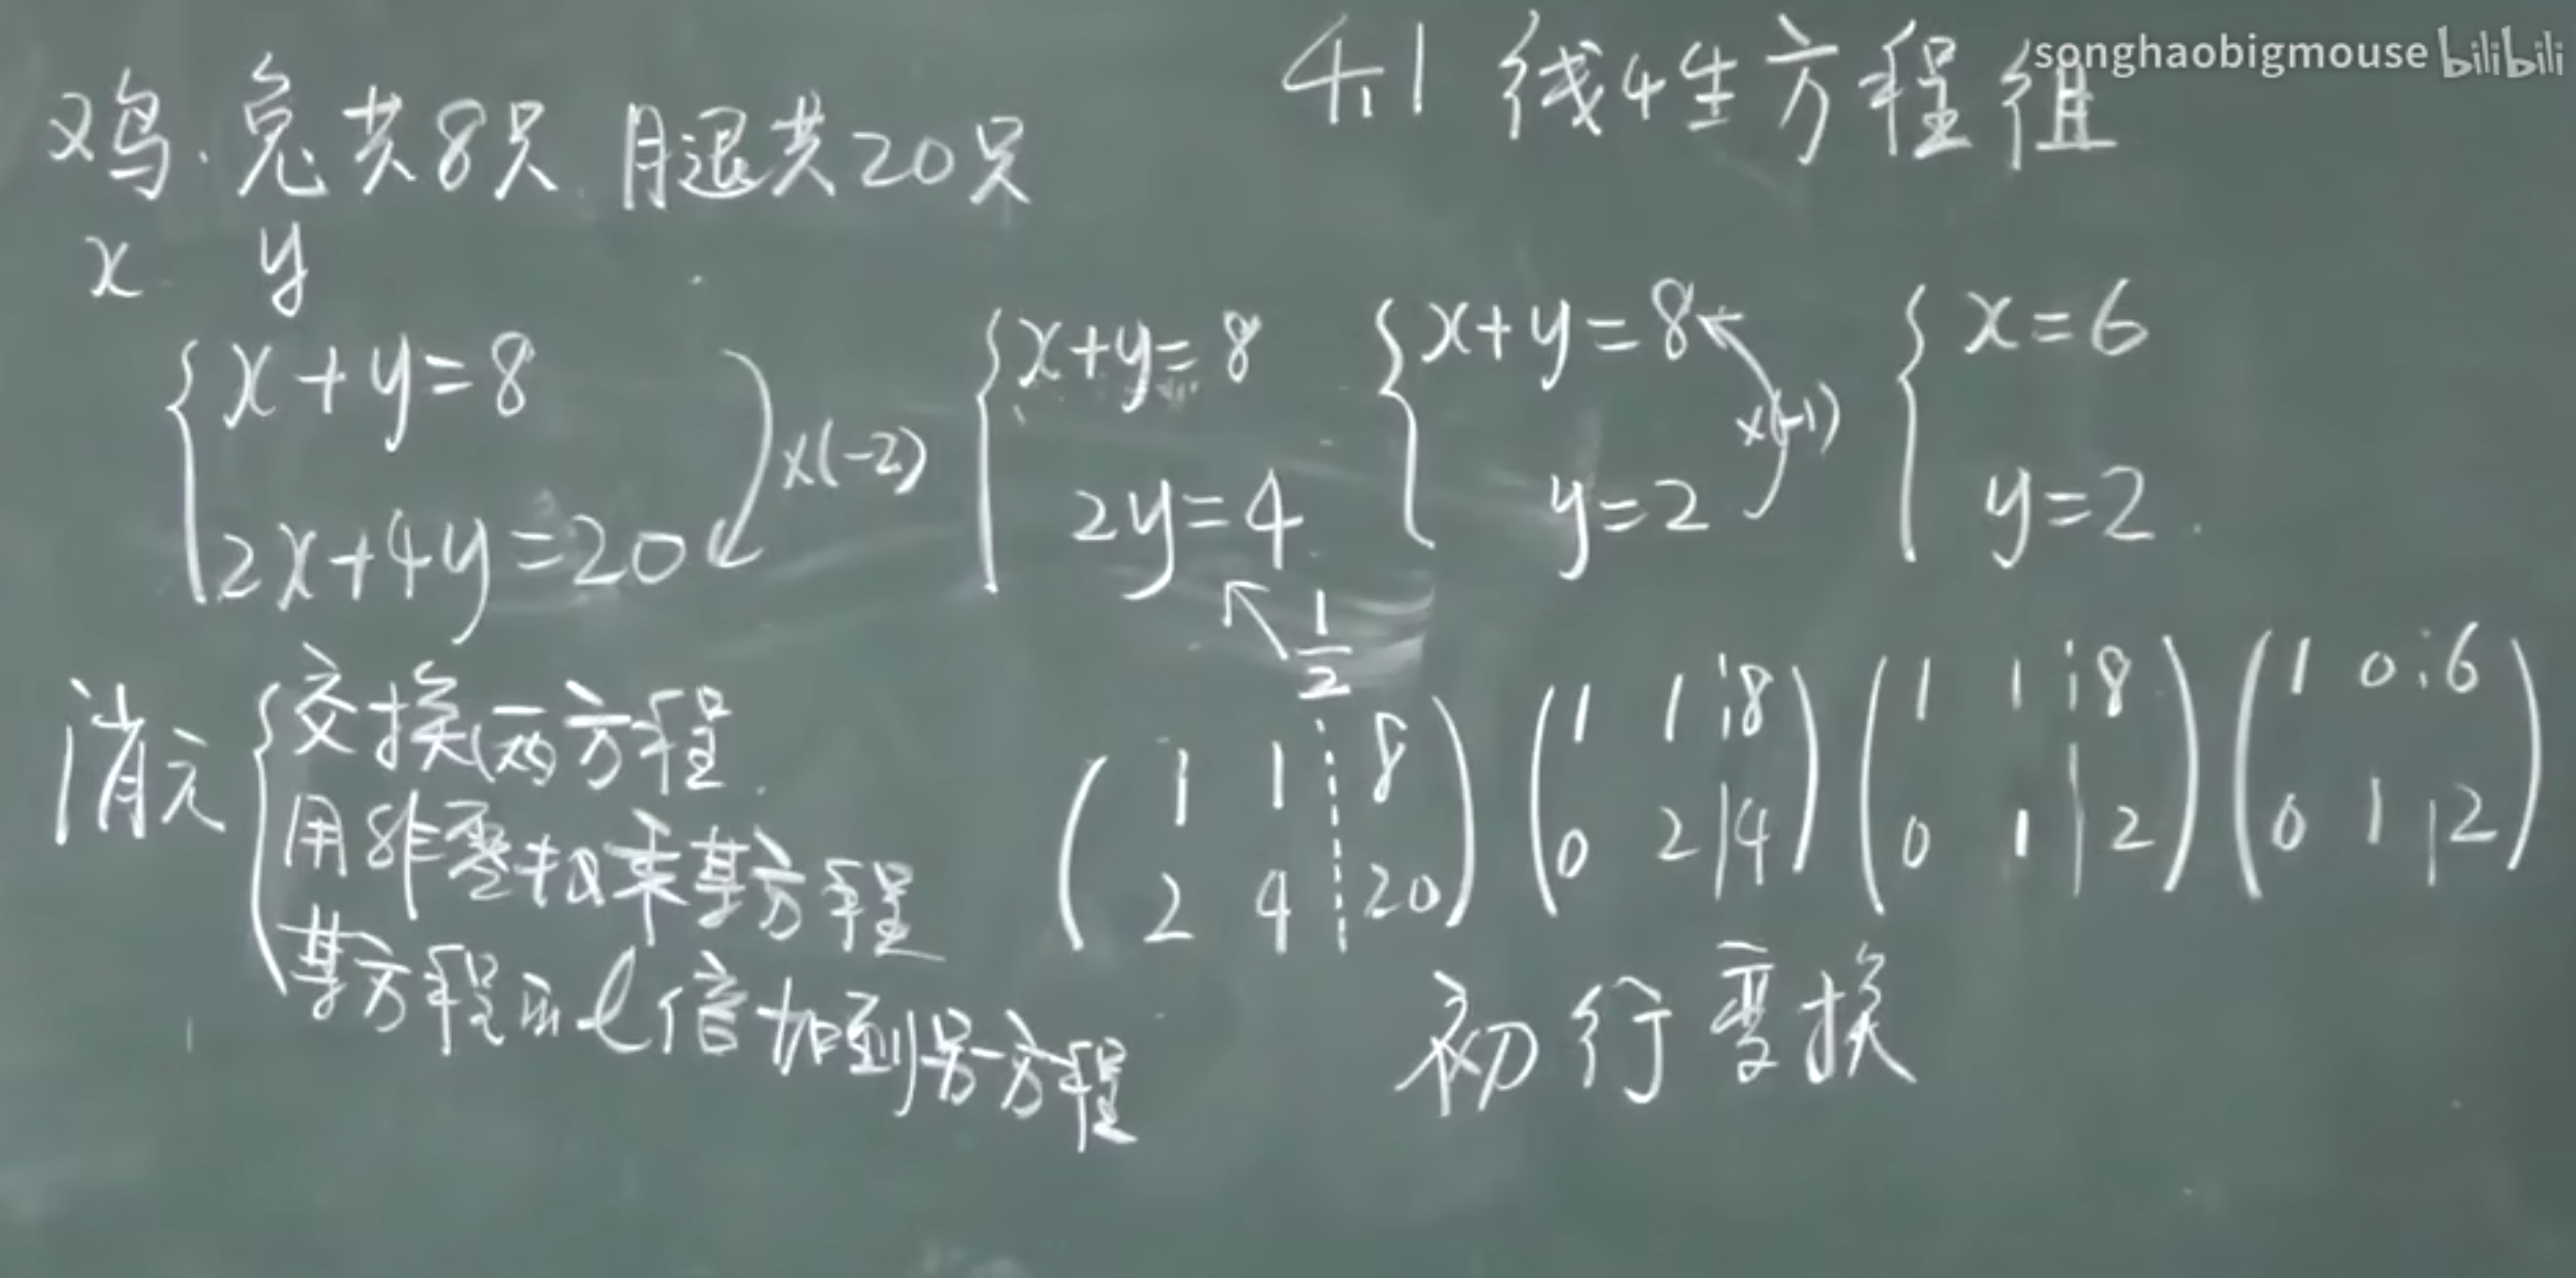 4.1 线性方程组
songhaobigmouse bilibili
鸡、兔共8只 腿共20只
x y
{ x+y=8 2x+4y=20 ×(-2)
{ x+y=8 2y=4 1/2
{ x+y=8 y=2 ×(-1)
{ x=6 y=2
消元 { 交换两方程
用非零数乘某方程
某方程的l倍加到另一方程
( 1 1 ┆ 8
2 4 ┆ 20 )
( 1 1 ┆ 8
0 2 | 4 )
( 1 1 ┆ 8
0 1 | 2 )
( 1 0 ┆ 6
0 1 | 2 )
初 行变换